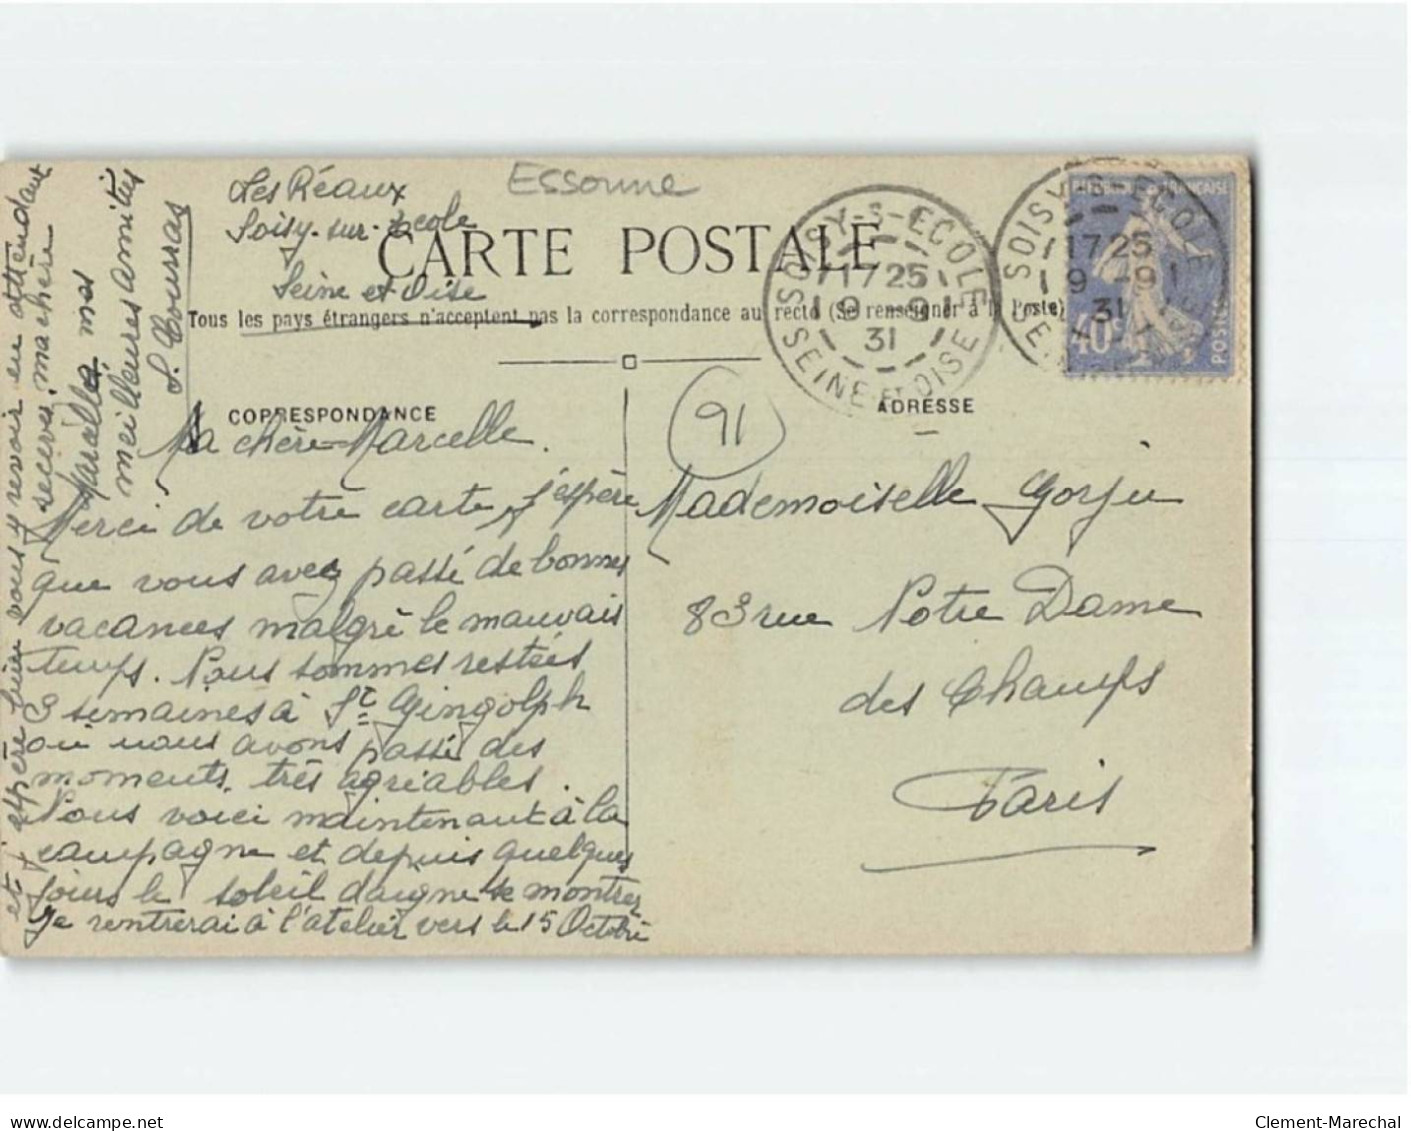 Les Réaux
Soisy-sur-Ecole
Seine et Oise
Essonne
CARTE POSTALE
Tous les pays étrangers n'acceptent pas la correspondance au recto (Se renseigner à la Poste)
CORRESPONDANCE
ADRESSE
SOISY-S-ECOLE
17 25
19 -9
31
SEINE ET OISE
SOISY-S-ECOLE
17 25
19 -9
31
SEINE
RÉPUBLIQUE FRANÇAISE
40c
POSTES
91
Ma chère Marcelle.
Merci de votre carte, j'espère
que vous avez passé de bonnes
vacances malgré le mauvais
temps. Nous sommes restées
3 semaines à St Gingolph
où nous avons passé des
moments très agréables.
Nous voici maintenant à la
campagne et depuis quelques
jours le soleil daigne se montrer
Je rentrerai à l'atelier vers le 15 Octobre
et j'espère bien vous y revoir en attendant
recevez, ma chère
Marcelle mes
meilleures amitiés
Mademoiselle Gorju
83 rue Notre Dame
des Champs
Paris
delcampe.net
Clement-Marechal